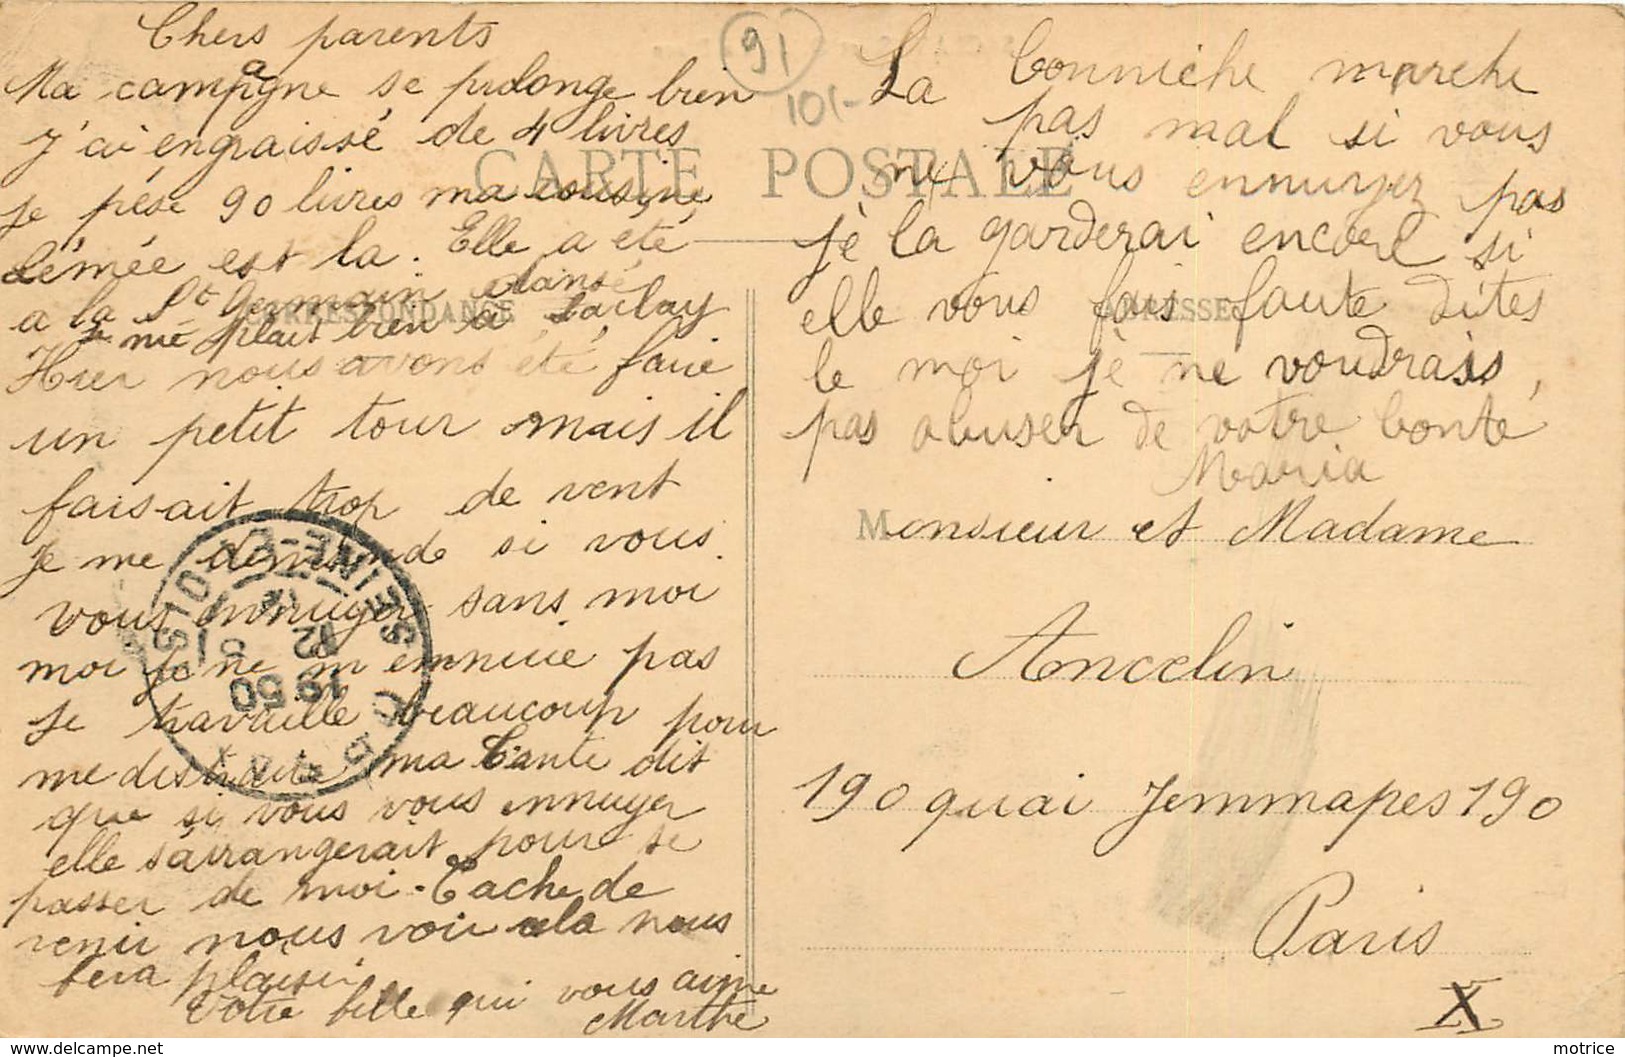 Chers parents
Ma campagne se prolonge bien
J'ai engraissé de 4 livres
je pése 90 livres ma cousine
Lémée est la. Elle a été
a la St Germain dansé
Je me plait bien à Saclay
Hier nous avons été faire
un petit tour mais il
faisait trop de vent
Je me demande si vous
vous ennuyer sans moi
moi je ne m'ennuie pas
Je travaille beaucoup pour
me distraire ma tante dit
que si vous vous ennuyer
elle s'arrangerait pour se
passer de moi. Tache de
venir nous voir cela nous
fera plaisir
Votre fille qui vous aime
Marthe
91
101-
La bonniche marche
pas mal si vous
ne vous ennuyez pas
jè la garderai encore si
elle vous fais faute dites
le moi jè ne voudrais
pas abuser de votre bonté
Maria
CARTE POSTALE
CORRESPONDANCE
ADRESSE
Monsieur et Madame
Ancelin
190 quai Jemmapes 190
Paris
X
SEINE-ET-OISE
19 50
12
motrice | www.delcampe.net